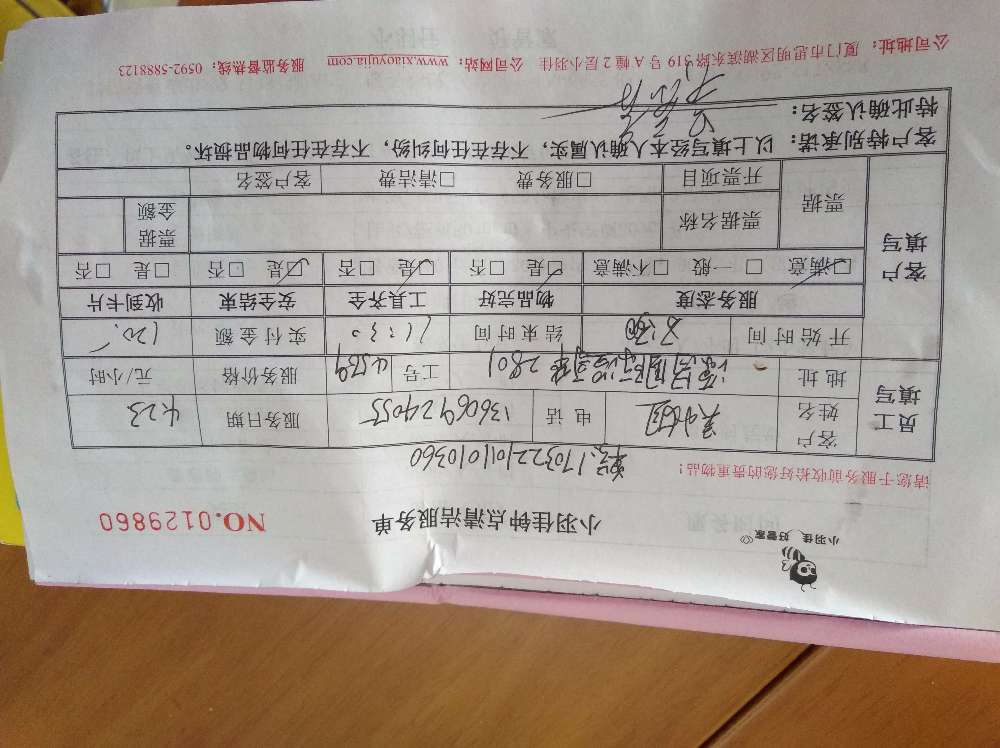 小羽佳 好管家
小羽佳钟点清洁服务单 NO.0129860
请您于服务前收拾好您的贵重物品!
170322101010360
员工填写 客户姓名 电话 13606924055 服务日期 4.23
地址 2801 工号 4539 服务价格 元/小时
开始时间 8:30 结束时间 11:30 实付金额 120.
客户填写 服务态度 物品完好 工具齐全 安全结束 收到卡片
☑满意 □一般 □不满意 ☑是 □否 ☑是 □否 ☑是 □否 □是 □否
票据 票据名称 票据金额
开票项目 □服务费 □清洁费 客户签名
客户特别承诺:以上填写经本人确认属实,不存在任何纠纷,不存在任何物品损坏。
特此确认签名:
公司地址:厦门市思明区湖滨东路319号A幢2层小羽佳 公司网站:www.xiaoyujia.com 服务监督热线:0592-5888123